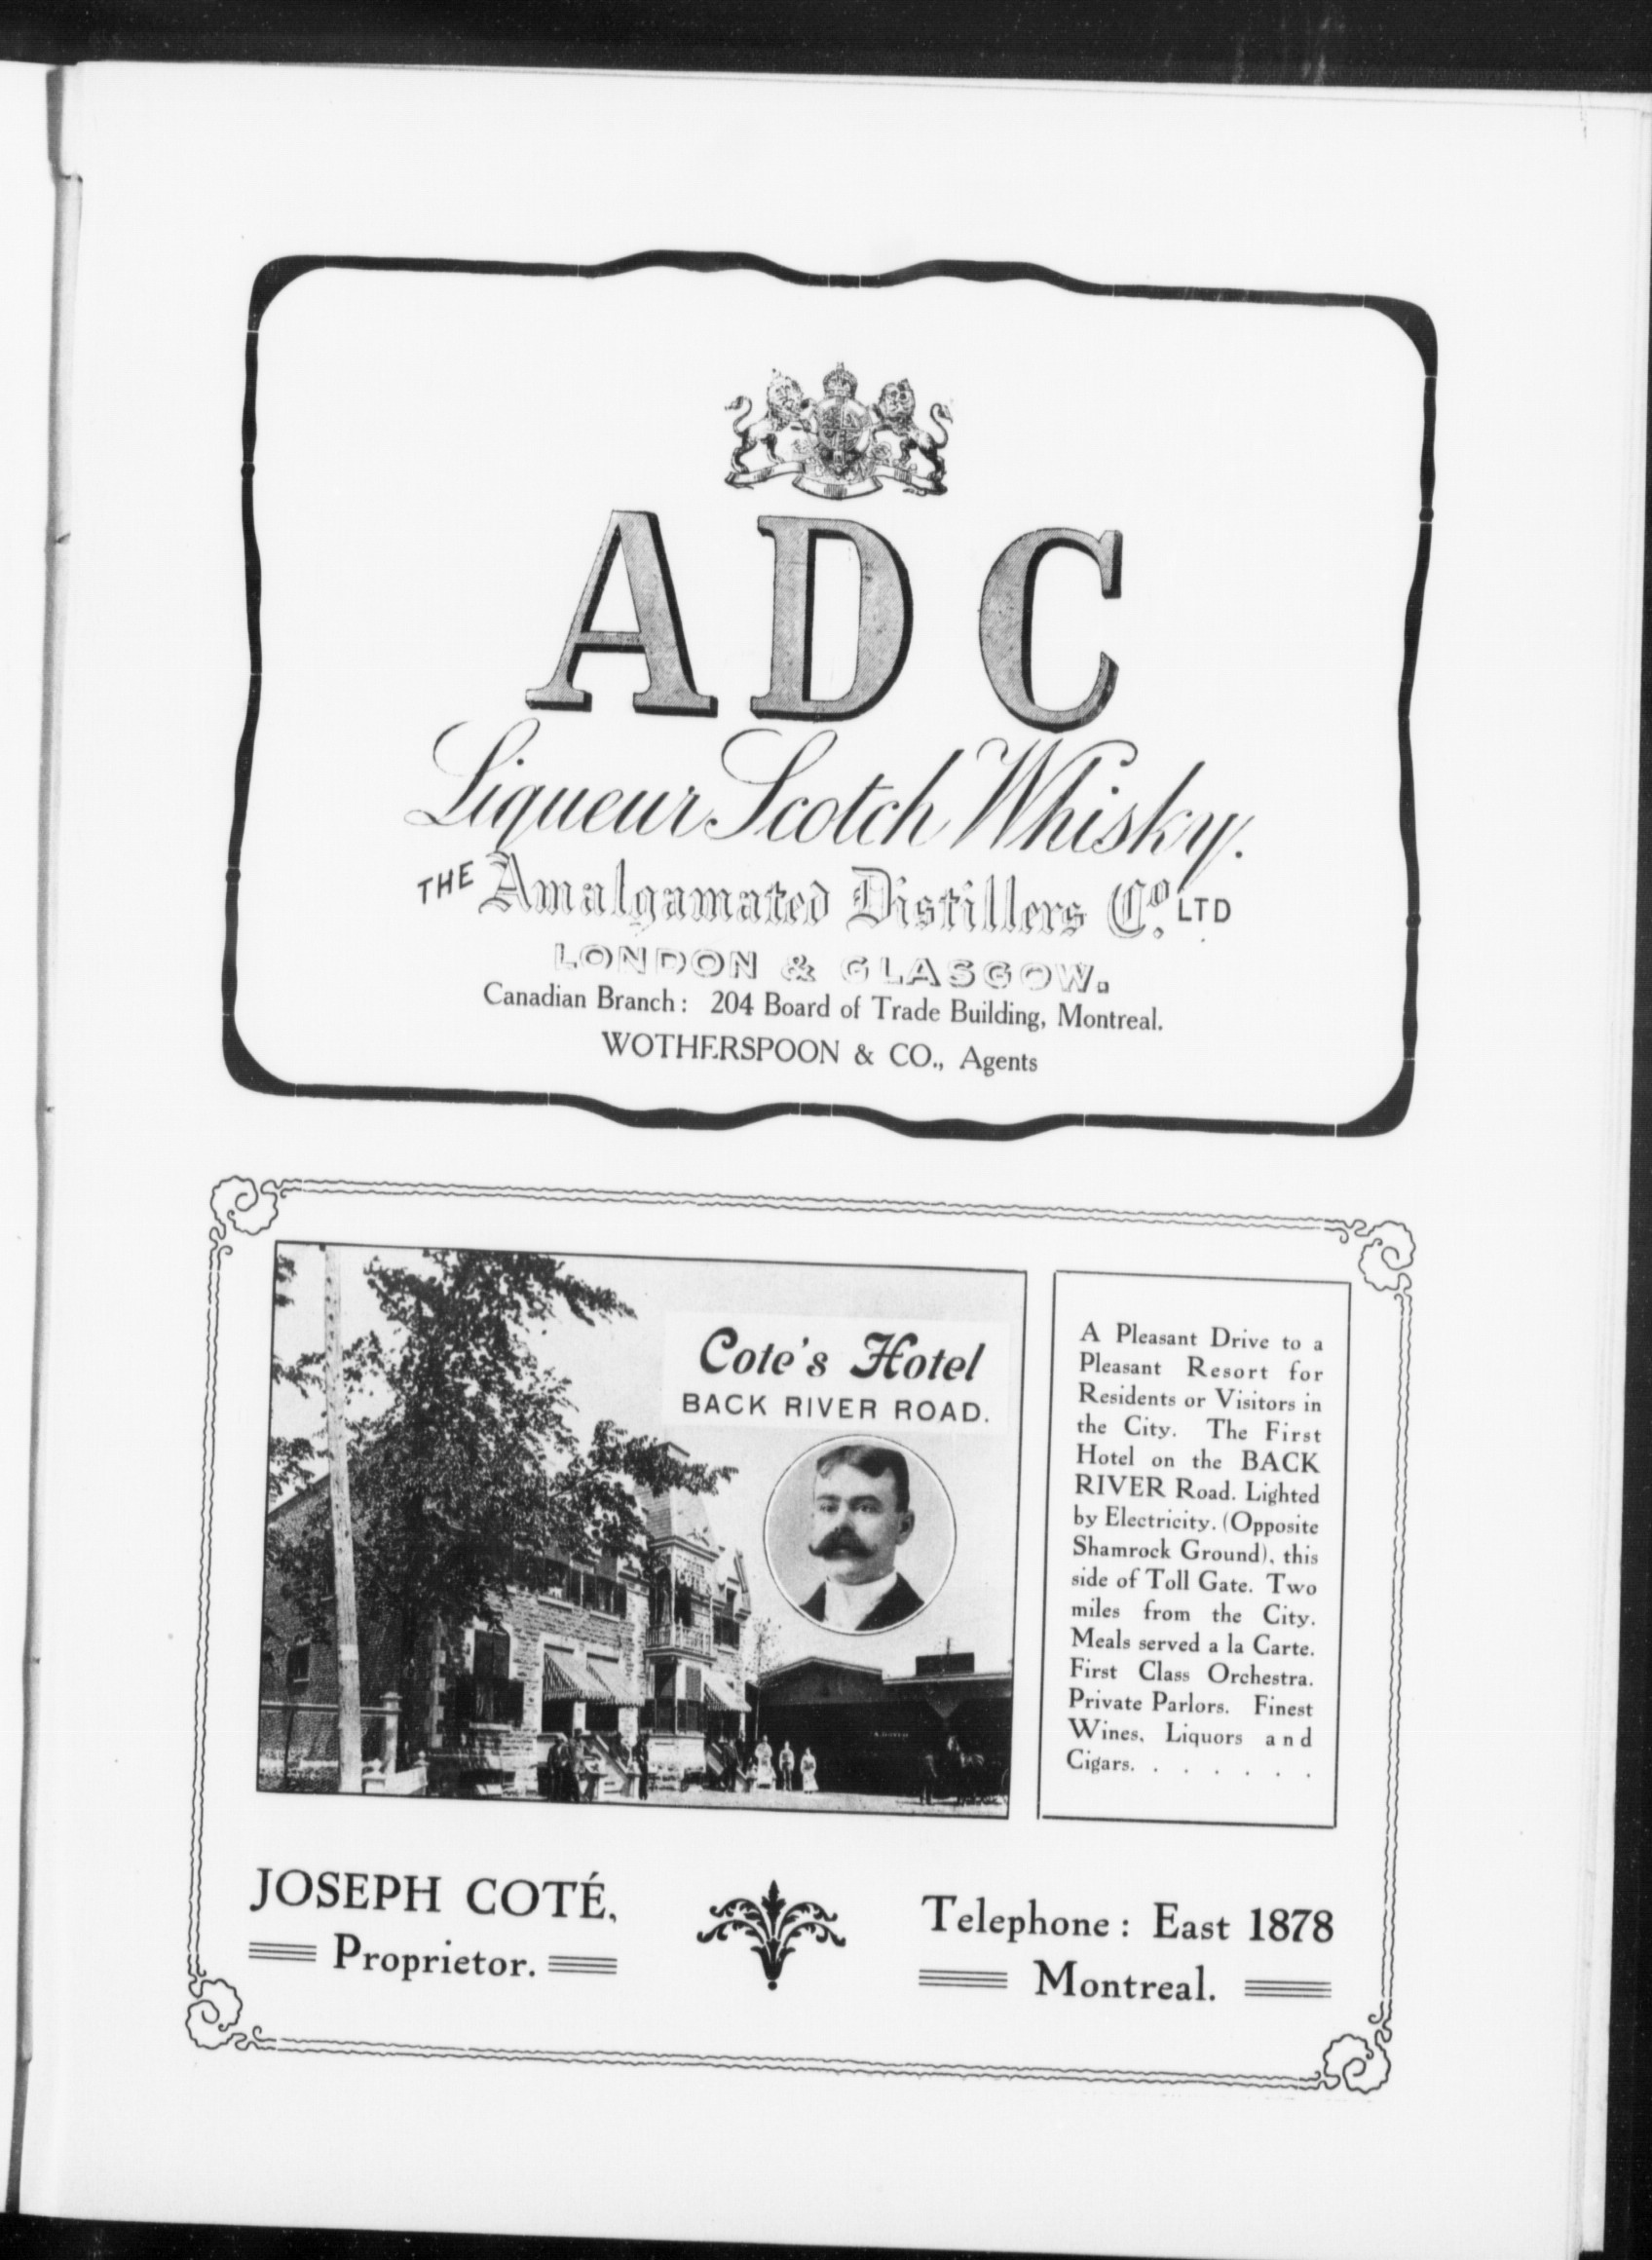 ADC
Liqueur Scotch Whisky.
THE Amalgamated Distillers Co. LTD
LONDON & GLASGOW.
Canadian Branch: 204 Board of Trade Building, Montreal.
WOTHERSPOON & CO., Agents
Cote's Hotel
BACK RIVER ROAD.
A Pleasant Drive to a
Pleasant Resort for
Residents or Visitors in
the City. The First
Hotel on the BACK
RIVER Road. Lighted
by Electricity. (Opposite
Shamrock Ground), this
side of Toll Gate. Two
miles from the City.
Meals served a la Carte.
First Class Orchestra.
Private Parlors. Finest
Wines, Liquors and
Cigars. . . . . . .
JOSEPH COTÉ,
Proprietor.
Telephone: East 1878
Montreal.